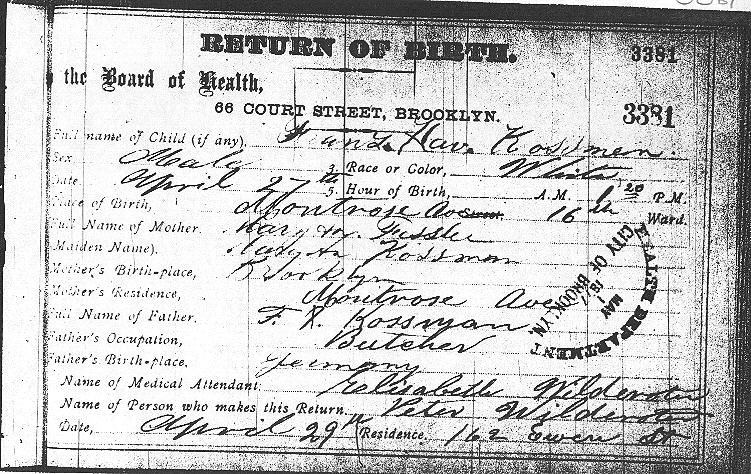 RETURN OF BIRTH.
3381
the Board of Health,
66 COURT STREET, BROOKLYN.
3381
Full name of Child (if any). Xav. Kossman.
Sex Male 3. Race or Color, White
Date April 27th 5. Hour of Birth, A.M. 1 20 P.M.
Place of Birth, Montrose Ave 16th Ward.
Full Name of Mother. Mary
Maiden Name). Mary Kossman
Mother's Birth-place, Brooklyn
Mother's Residence, Montrose Ave
Full Name of Father. F. X. Kossman
Father's Occupation, Butcher
Father's Birth-place, Germany
Name of Medical Attendant Elisabeth
Name of Person who makes this Return. Peter
Date, April 29th Residence, 162 Ewen St
HEALTH DEPARTMENT
CITY OF BROOKLYN.
MAY